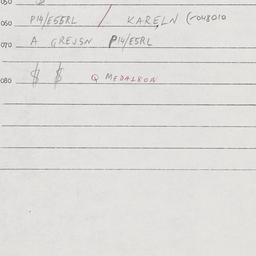 050
060 P14/E55RL / KARELN
070 A GREJSN P14/E5RL
080 $ $ Q MEDALRON